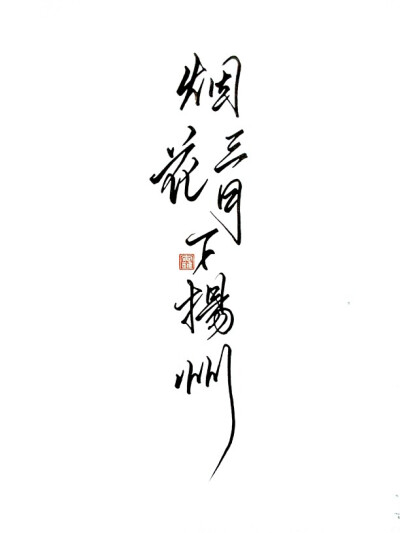 烟花三月下揚州